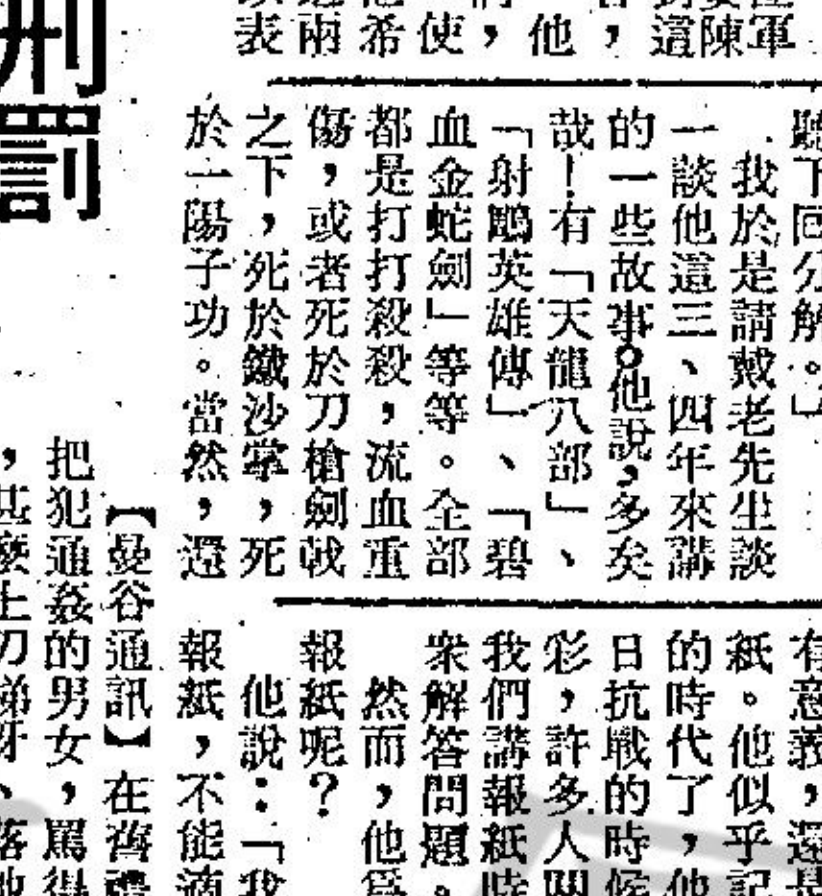 這陳軍
，
他
使，
希
兩
表
聽下回分解。」
我於是請戴老先生談
一談他這三、四年來講
的一些故事。他說，多矣
哉！有「天龍八部」、
「射鵰英雄傳」、「碧
血金蛇劍」等等。全部
都是打打殺殺，流血重
傷，或者死於刀槍劍戟
之下，死於鐵沙掌，死
於一陽子功。當然，還
有意義，還是
紙。他似乎記
的時代了，他
日抗戰的時候
彩，許多人
我們講報紙時
衆解答問題。
然而，他爲
報紙呢？
他說：「我
報紙，不能
刑罰
【曼谷通訊】在舊禮
把犯通姦的男女，罵得
，甚麼上刀梯